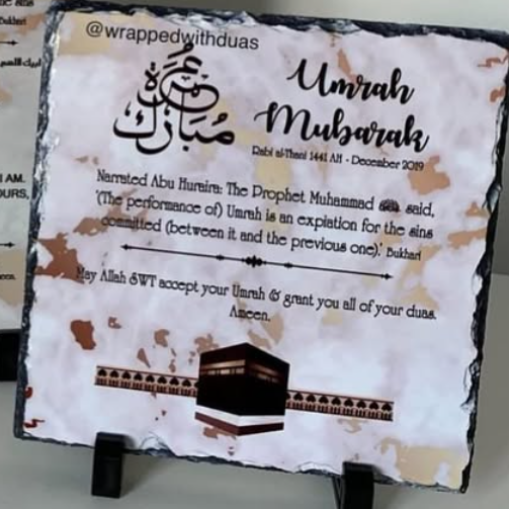 Bukhari
@wrappedwithduas
عمرة
مبارك
Umrah
Mubarak
Rabi al-Thani 1441 AH - December 2019
I AM.
OURS,
Narrated Abu Huraira: The Prophet Muhammad ﷺ said,
'(The performance of) Umrah is an expiation for the sins
committed (between it and the previous one).' Bukhari
May Allah SWT accept your Umrah & grant you all of your duas.
Ameen.